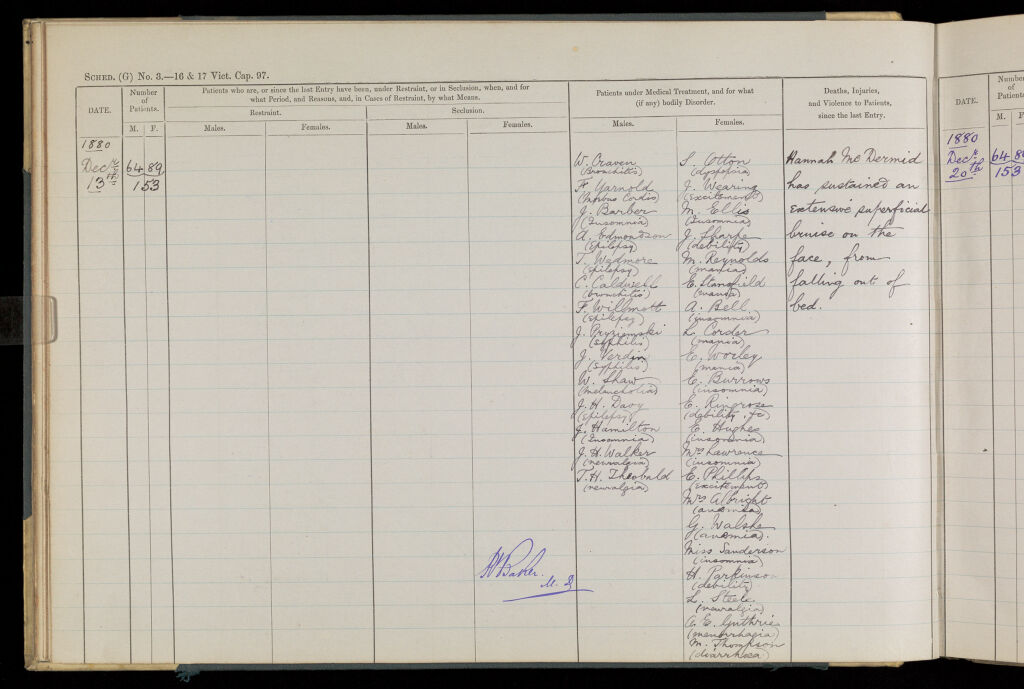 SCHED. (G) No. 3.—16 & 17 Vict. Cap. 97.
DATE.
Number
of
Patients.
M. F.
Patients who are, or since the last Entry have been, under Restraint, or in Seclusion, when, and for
what Period, and Reasons, and, in Cases of Restraint, by what Means.
Restraint.
Seclusion.
Males.
Females.
Males.
Females.
Patients under Medical Treatment, and for what
(if any) bodily Disorder.
Males.
Females.
Deaths, Injuries,
and Violence to Patients,
since the last Entry.
1880
Decr
13th
64 89
153
W. Craven
(Bronchitis)
F. Yarnold
(Morbus Cordis)
J. Barber
(Insomnia)
A. Edmondson
(Epilepsy)
T. Wedmore
(Epilepsy)
C. Caldwell
(bronchitis)
F. Willmott
(Epilepsy)
J. Pryziemski
(Syphilis)
J. Verdin
(Syphilis)
W. Shaw
(Melancholia)
J. H. Davy
(Epilepsy)
J. Hamilton
(Insomnia)
J. H. Walker
(neuralgia)
T. H. Theobald
(neuralgia)
S. Otton
(dyspepsia)
J. Wearing
(Excitement)
M. Ellis
(Insomnia)
J. Sharpe
(debility)
M. Reynolds
(mania)
E. Stansfield
(mania)
A. Bell
(insomnia)
L. Corder
(mania)
E. Worley
(mania)
E. Burrows
(insomnia)
E. Ringrose
(debility, &c)
E. Hughes
(insomnia)
Mrs Lawrence
(insomnia)
E. Phillips
(Excitement)
Mrs Albright
(anæmia)
G. Walshe
(anæmia).
Miss Sanderson
(insomnia)
H. Parkinson
(debility)
L. Steele
(neuralgia)
A. E. Guthrie
(menorrhagia)
M. Thompson
(diarrhœa)
Hannah McDermid
has sustained an
extensive superficial
bruise on the
face, from
falling out of
bed.
Baker.
M. D
DATE.
Number
of
Patients
M. F.
1880
Decr
20th
64
153